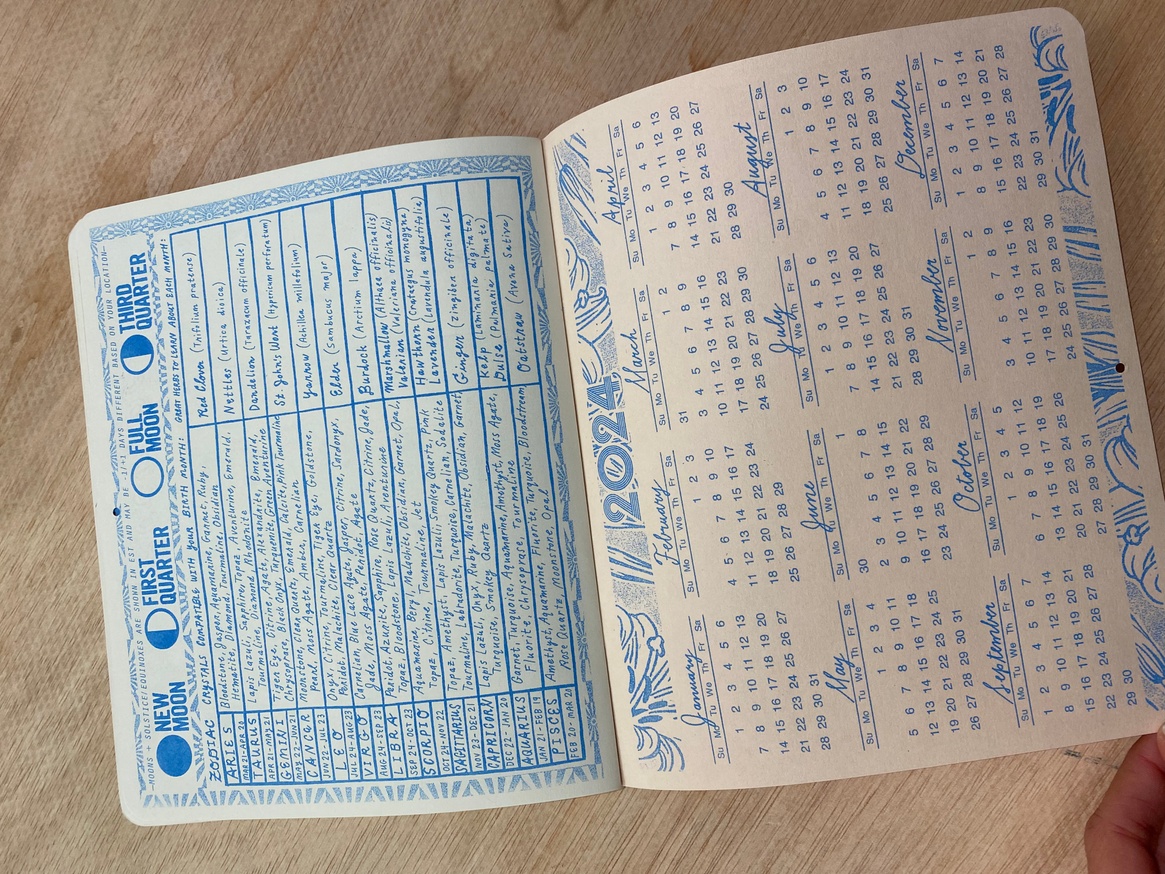 MOONS + SOLSTICE/EQUINOXES ARE SHOWN IN EST AND MAY BE 1-2 DAYS DIFFERENT BASED ON YOUR LOCATION
NEW MOON
FIRST QUARTER
FULL MOON
THIRD QUARTER
ZODIAC CRYSTALS COMPATIBLE WITH YOUR BIRTH MONTH: GREAT HERBS TO LEARN ABOUT EACH MONTH:
ARIES Bloodstone, Jasper, Aquamarine, Garnet, Ruby, Red Clover (Trifolium pratense)
MAR 21-APR 20 Hematite, Diamond, Tourmaline, Obsidian
TAURUS Lapis Lazuli, Sapphire, Topaz, Aventurine, Emerald, Nettles (Urtica dioica)
APR 21-MAY 21 Tourmaline, Diamond, Rhodonite
GEMINI Tigen Eye, Citrine, Agate, Alexandrite, Emerald, Dandelion (Taraxacum officinale)
MAY 22-JUN 21 Chrysoprase, Black Onyx, Turquoise, Green Aventurine
CANCER Moonstone, Clear Quartz, Emerald, Calcite, Pink Tourmaline St John's Wort (Hypericum perforatum)
JUN 22-JUL 23 Pearl, Moss Agate, Amber, Carnelian
LEO Onyx, Citrine, Tourmaline, Tiger Eye, Goldstone, Yarrow (Achillea millefolium)
JUL 24-AUG 23 Peridot, Malachite, Clear Quartz
VIRGO Carnelian, Blue Lace Agate, Jasper, Citrine, Sardonyx, Elder (Sambucus major)
AUG 24-SEP 23 Jade, Moss Agate, Peridot, Agate
LIBRA Peridot, Azurite, Sapphire, Rose Quartz, Citrine, Jade, Burdock (Arctium lappa)
SEP 24-OCT 23 Topaz, Bloodstone, Lapis Lazuli, Aventurine
SCORPIO Aquamarine, Beryl, Malachite, Obsidian, Garnet, Opal, Marshmallow (Althaea officinalis)
OCT 24-NOV 22 Topaz, Citrine, Tourmaline, Jet Valerian (Valeriana officinalis)
SAGITARIUS Topaz, Amethyst, Lapis Lazuli, Smokey Quartz, Pink Hawthorn (Crataegus monogyna)
NOV 23-DEC 21 Tourmaline, Labradorite, Turquoise, Carnelian, Sodalite Lavender (Lavendula augustifolia)
CAPRICORN Lapis Lazuli, Onyx, Ruby, Malachite, Obsidian, Garnet Ginger (Zingiber officinale)
DEC 22-JAN 20 Turquoise, Smokey Quartz
AQUARIUS Garnet, Turquoise, Aquamarine, Amethyst, Moss Agate, Kelp (Laminaria digitata)
JAN 21-FEB 19 Fluorite, Chrysoprase, Tourmaline Dulse (Palmaria palmate)
PISCES Amethyst, Aquamarine, Fluorite, Turquoise, Bloodstream Oatstraw (Avena Sativa)
FEB 20-MAR 20 Rose Quartz, Moonstone, Opal
2024
January
Su Mo Tu We Th Fr Sa
1 2 3 4 5 6
7 8 9 10 11 12 13
14 15 16 17 18 19 20
21 22 23 24 25 26 27
28 29 30 31
February
Su Mo Tu We Th Fr Sa
1 2 3
4 5 6 7 8 9 10
11 12 13 14 15 16 17
18 19 20 21 22 23 24
25 26 27 28 29
March
Su Mo Tu We Th Fr Sa
31 1 2
3 4 5 6 7 8 9
10 11 12 13 14 15 16
17 18 19 20 21 22 23
24 25 26 27 28 29 30
April
Su Mo Tu We Th Fr Sa
1 2 3 4 5 6
7 8 9 10 11 12 13
14 15 16 17 18 19 20
21 22 23 24 25 26 27
28 29 30
May
Su Mo Tu We Th Fr Sa
1 2 3 4
5 6 7 8 9 10 11
12 13 14 15 16 17 18
19 20 21 22 23 24 25
26 27 28 29 30 31
June
Su Mo Tu We Th Fr Sa
30 1
2 3 4 5 6 7 8
9 10 11 12 13 14 15
16 17 18 19 20 21 22
23 24 25 26 27 28 29
July
Su Mo Tu We Th Fr Sa
1 2 3 4 5 6
7 8 9 10 11 12 13
14 15 16 17 18 19 20
21 22 23 24 25 26 27
28 29 30 31
August
Su Mo Tu We Th Fr Sa
1 2 3
4 5 6 7 8 9 10
11 12 13 14 15 16 17
18 19 20 21 22 23 24
25 26 27 28 29 30 31
September
Su Mo Tu We Th Fr Sa
1 2 3 4 5 6 7
8 9 10 11 12 13 14
15 16 17 18 19 20 21
22 23 24 25 26 27 28
29 30
October
Su Mo Tu We Th Fr Sa
1 2 3 4 5
6 7 8 9 10 11 12
13 14 15 16 17 18 19
20 21 22 23 24 25 26
27 28 29 30 31
November
Su Mo Tu We Th Fr Sa
1 2
3 4 5 6 7 8 9
10 11 12 13 14 15 16
17 18 19 20 21 22 23
24 25 26 27 28 29 30
December
Su Mo Tu We Th Fr Sa
1 2 3 4 5 6 7
8 9 10 11 12 13 14
15 16 17 18 19 20 21
22 23 24 25 26 27 28
29 30 31